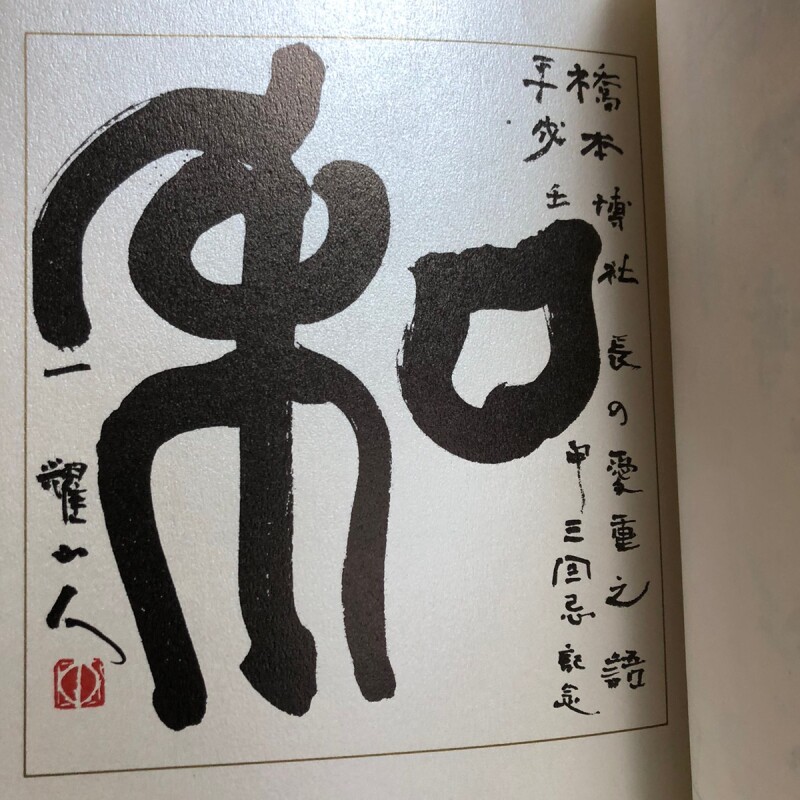 橋本博社長の愛重之語
平成壬申三回忌記念
和
一耀山人